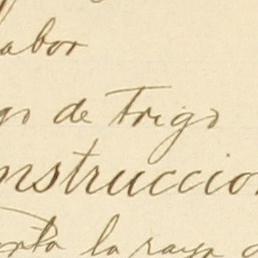 abor
go de Trigo
nstruccion
la raya